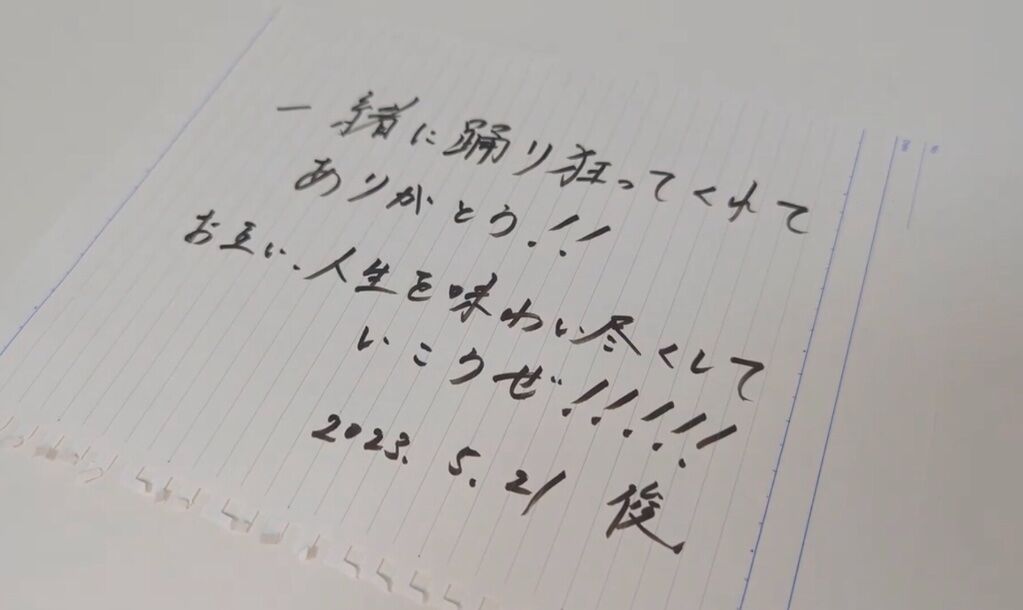 一緒に踊り狂ってくれて
ありがとう!!
お互い、人生を味わい尽くして
いこうぜ!!!!!
2023. 5. 21 俊